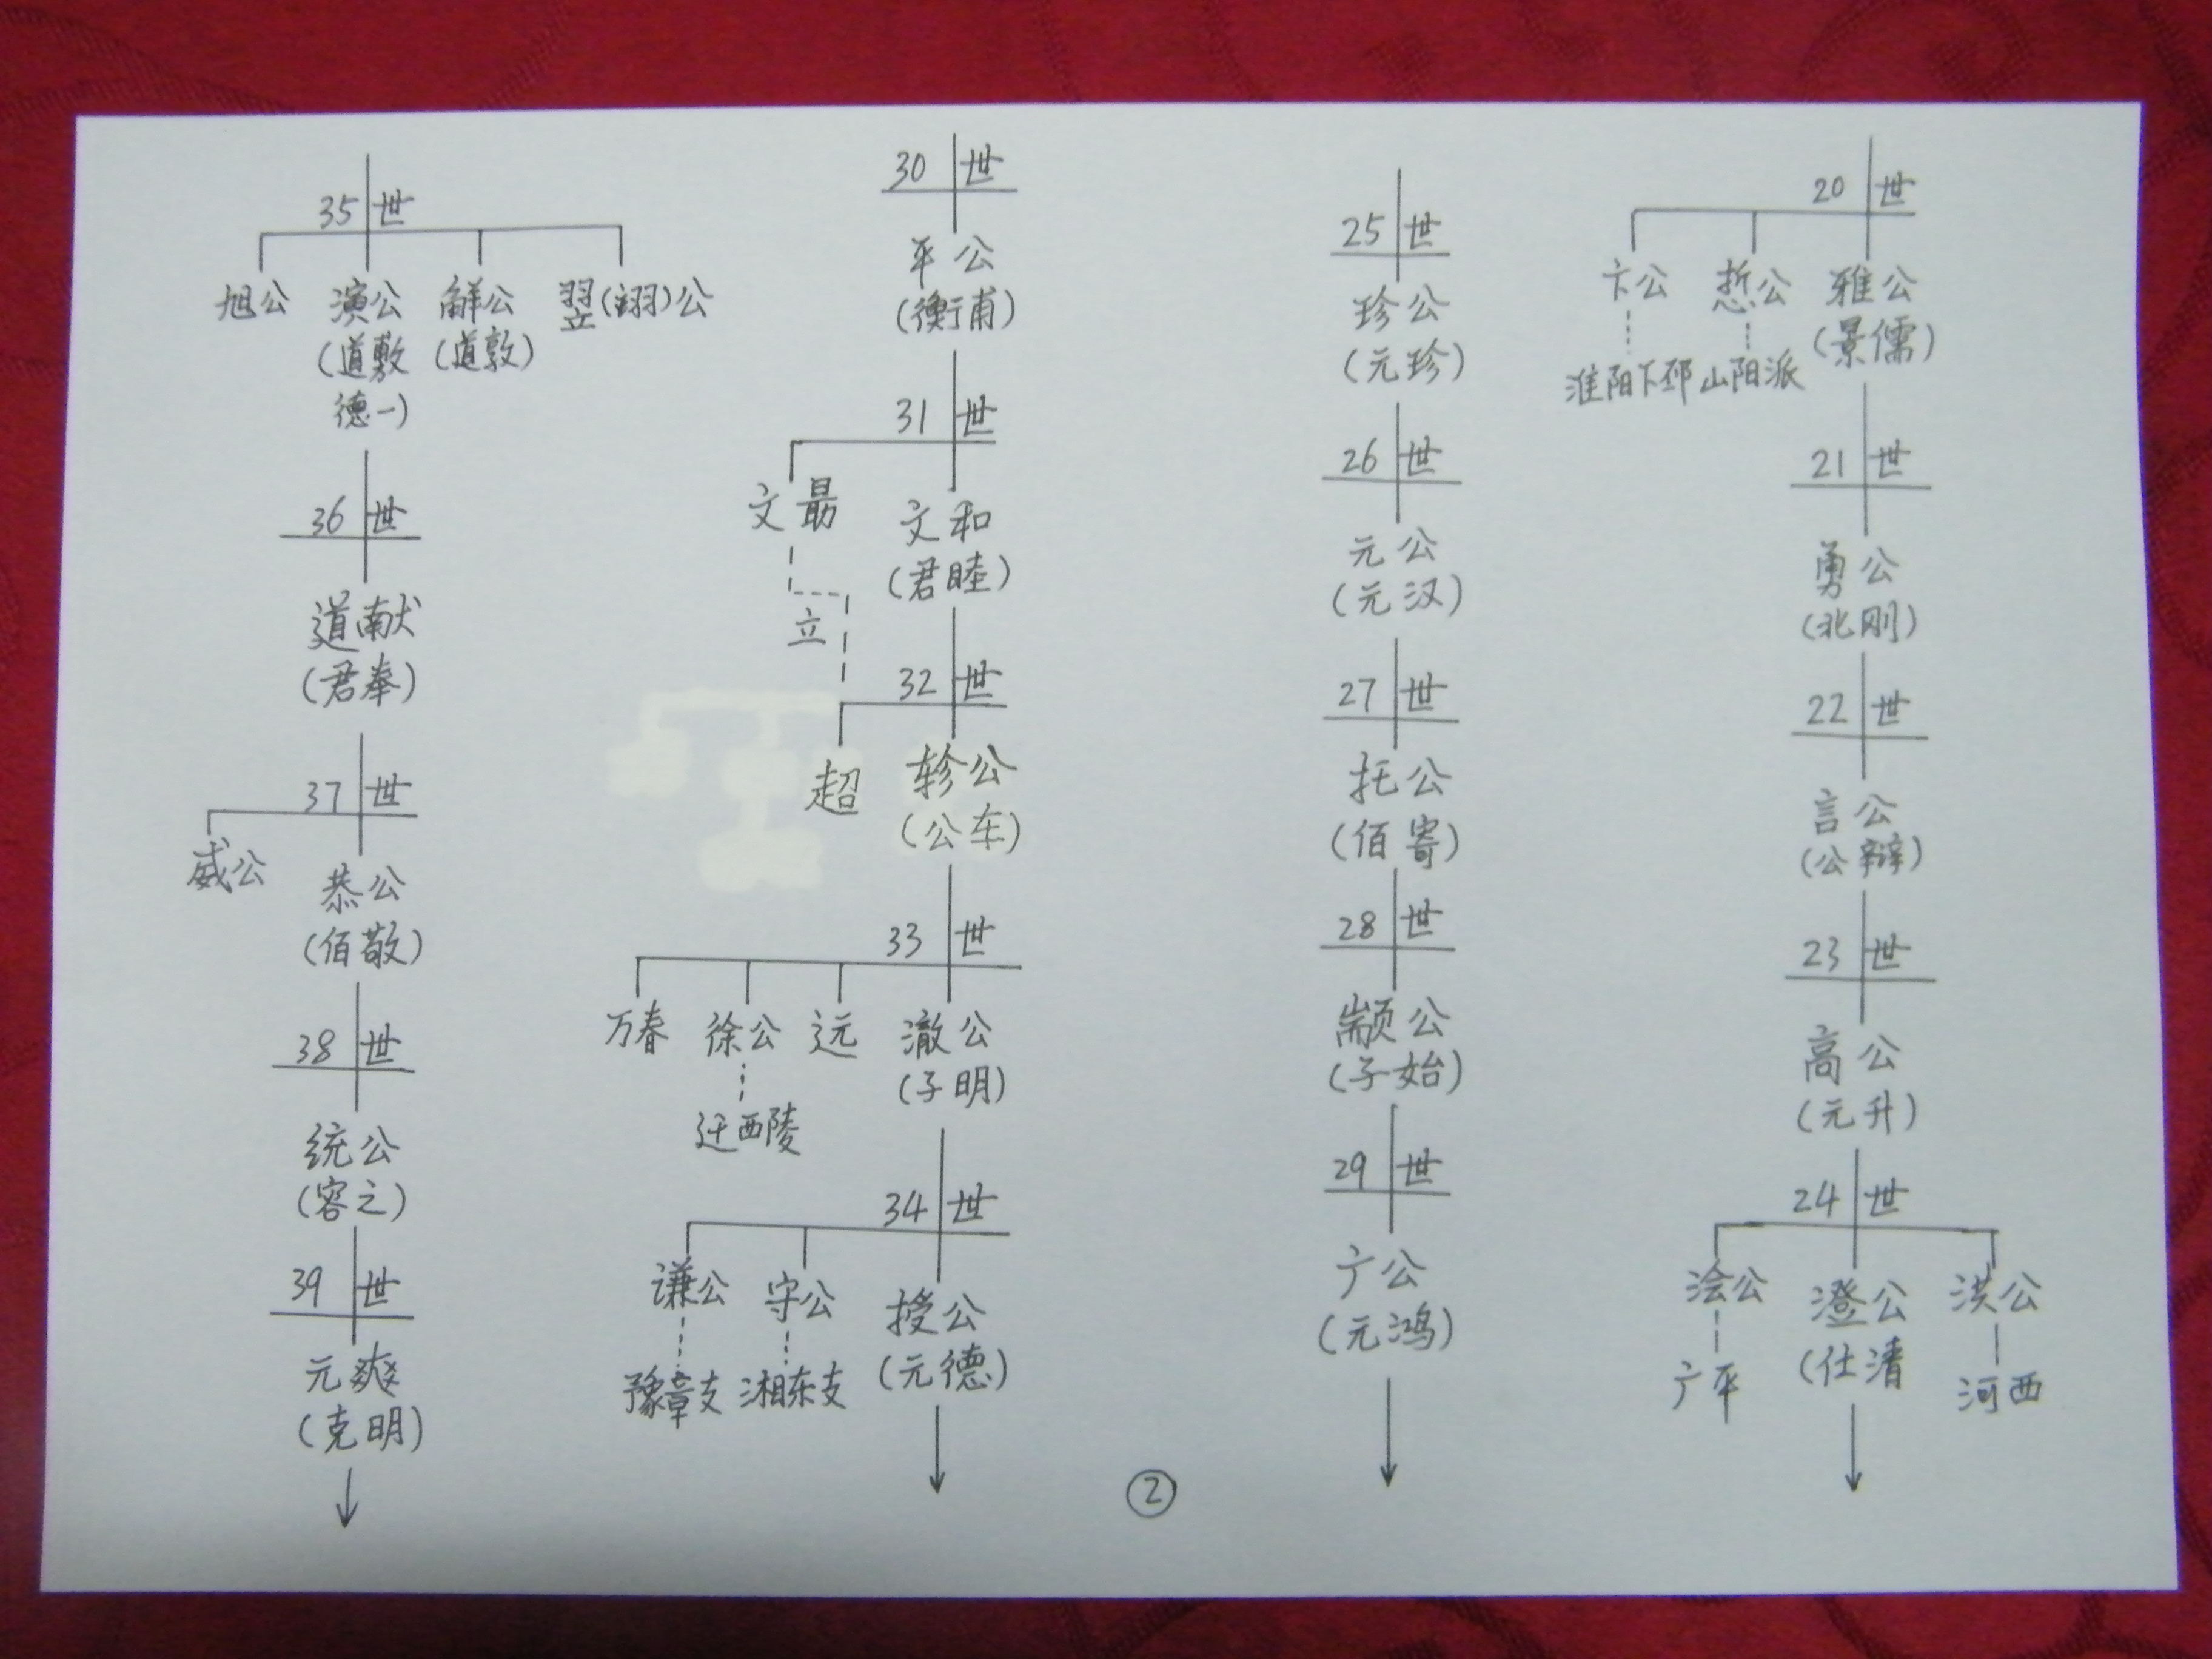 20世
卞公 悊公 雅公
(景儒)
淮阳下邳 山阳派
21世
勇公
(北刚)
22世
言公
(公辩)
23世
高公
(元升)
24世
浍公 澄公 洪公
(仕清
广平 河西
25世
珍公
(元珍)
26世
元公
(元汉)
27世
托公
(佰寄)
28世
颛公
(子始)
29世
广公
(元鸿)
30世
平公
(衡甫)
31世
文勖 文和
(君睦)
立
32世
超 轸公
(公车)
33世
万春 徐公 远 澈公
(子明)
迁西陵
34世
谦公 守公 授公
(元德)
豫章支 湘东支
35世
旭公 演公 鲜公 翌(翊)公
(道敷 (道敦)
德一)
36世
道献
(君奉)
37世
威公 恭公
(佰敬)
38世
统公
(容之)
39世
元爽
(克明)
②